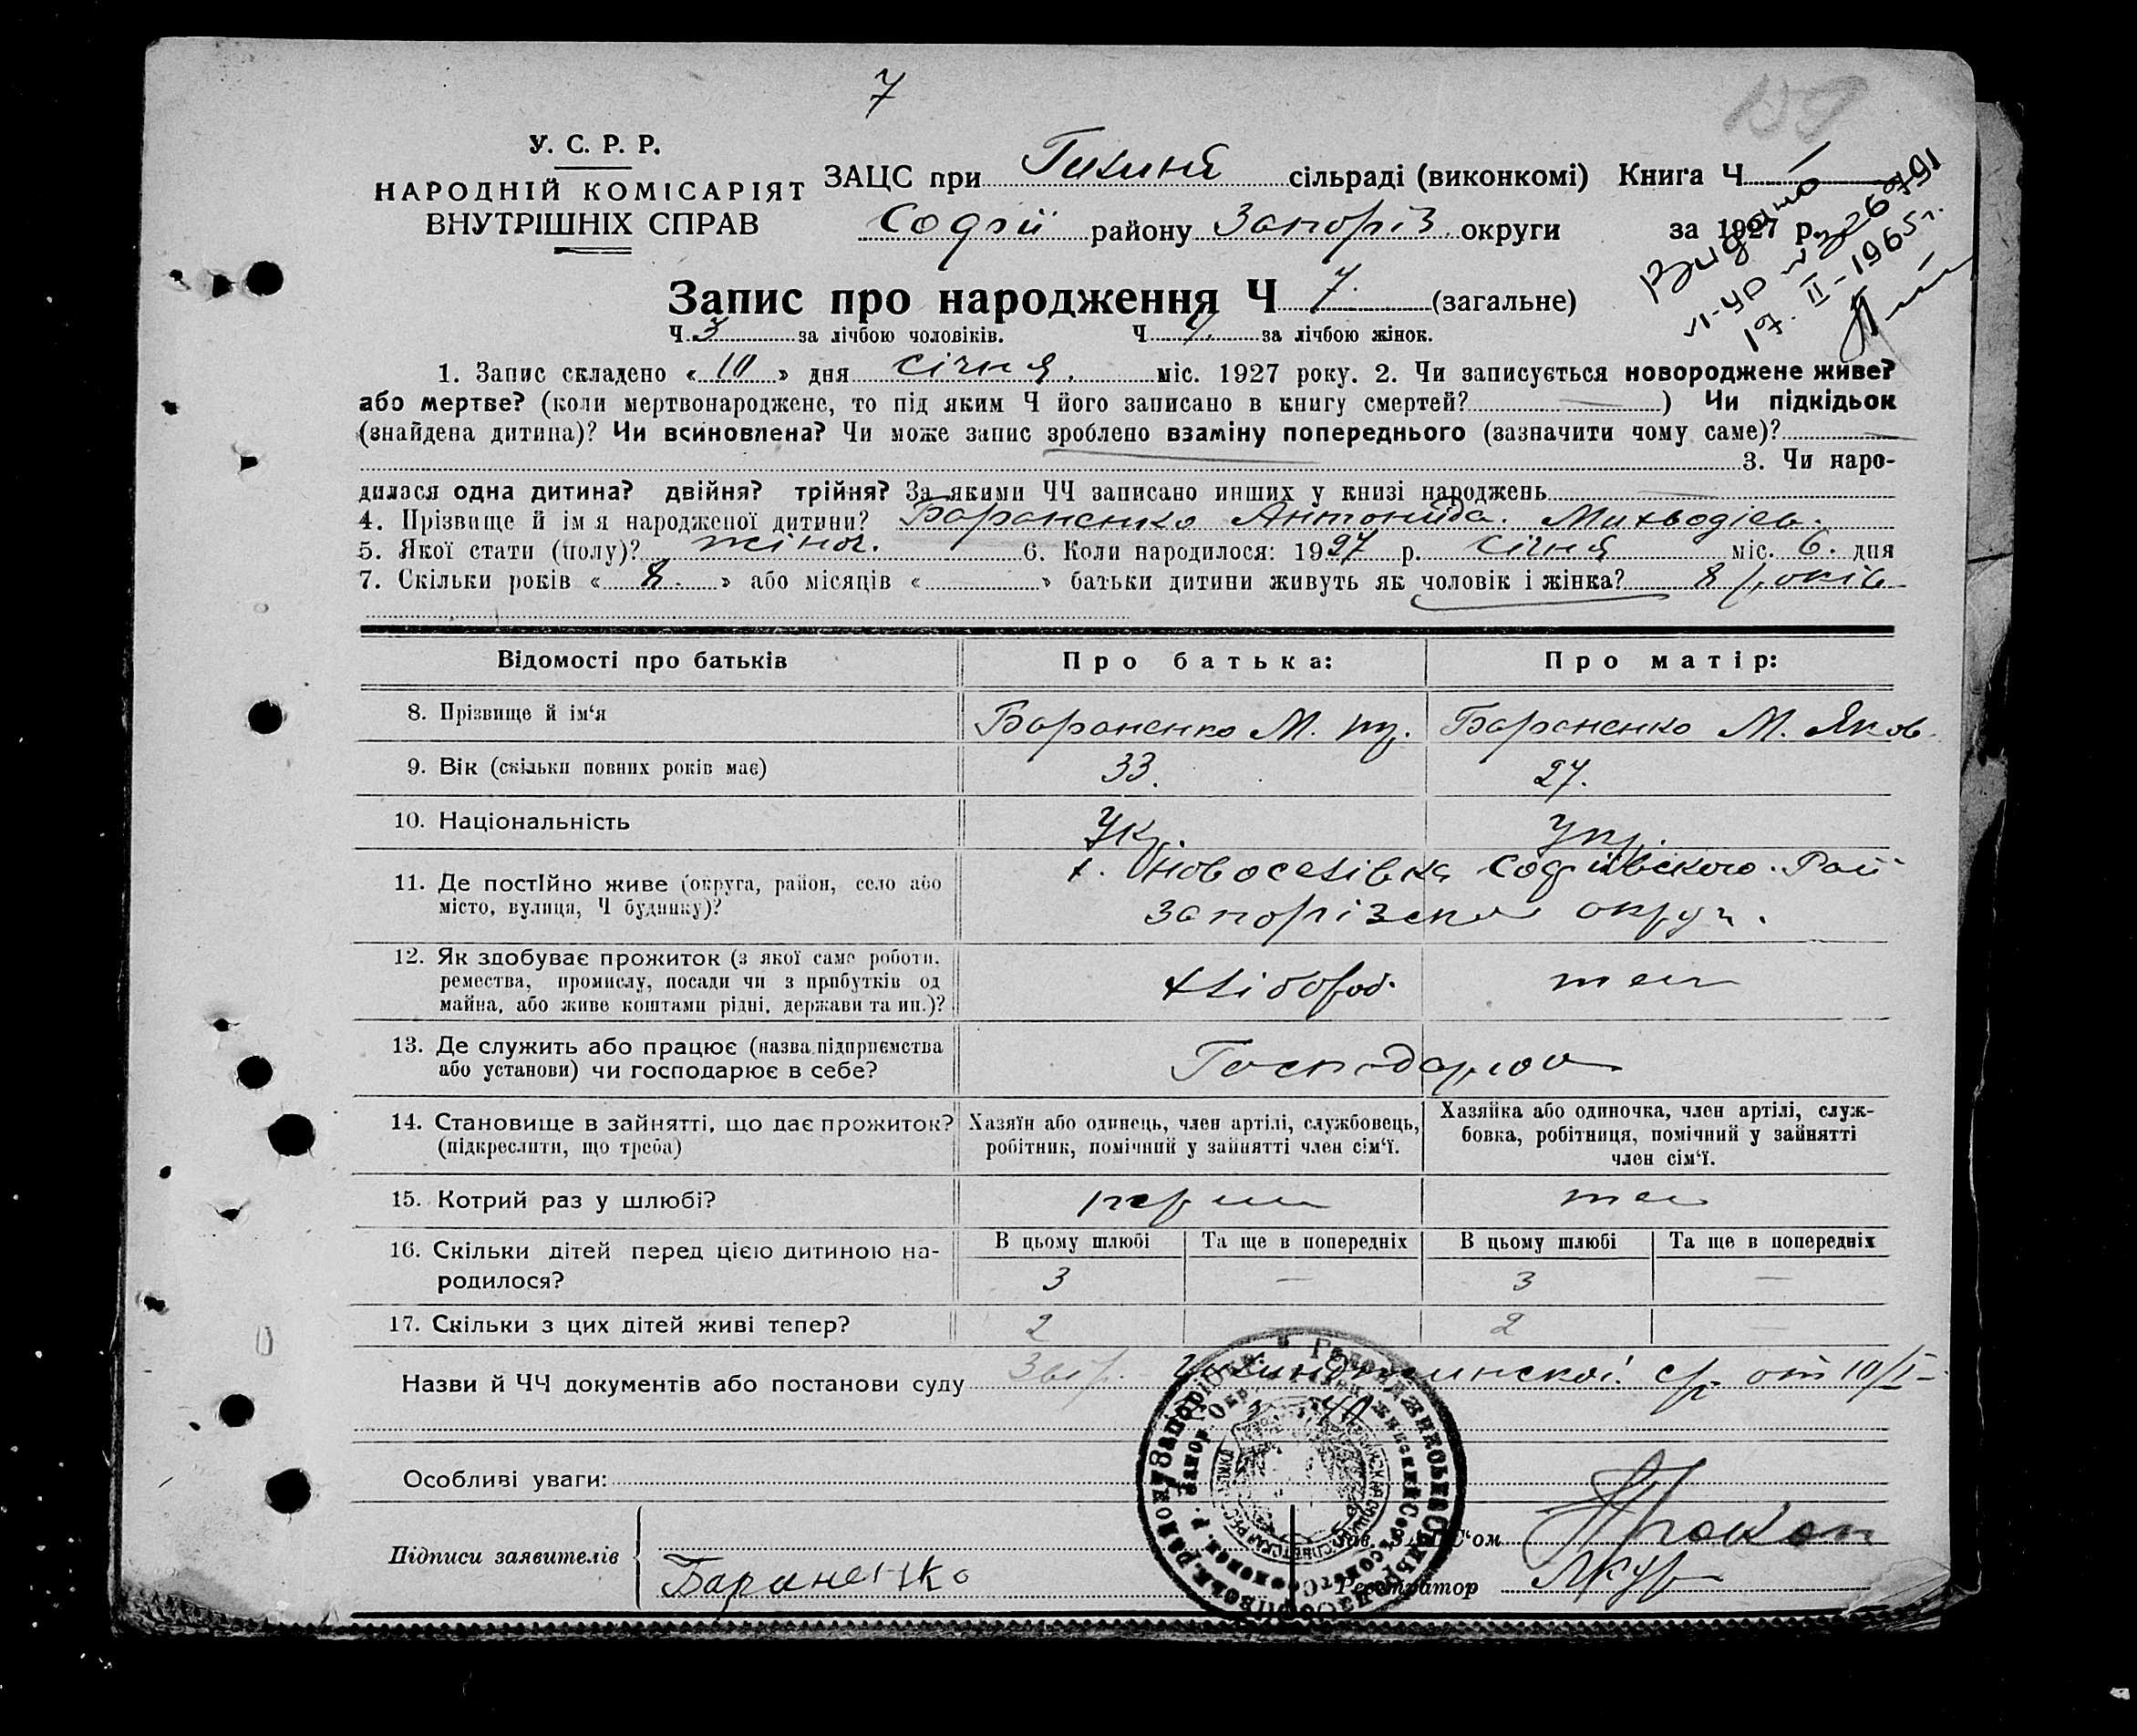 7
159
У. С. Р. Р.
НАРОДНІЙ КОМІСАРІЯТ
ВНУТРІШНІХ СПРАВ
ЗАЦС при сільраді (виконкомі) Книга Ч. 1
Софії району Запоріз. округи за 1927 р.
Видано
17. II-1965 г.
Запис про народження Ч 7. (загальне)
Ч. 3 за лічбою чоловіків. Ч. 4. за лічбою жінок.
1. Запис складено «10» дня січня. міс. 1927 року. 2. Чи записується новороджене живе?
або мертве? (коли мертвонароджене, то під яким Ч його записано в книгу смертей? —) Чи підкідьок
(знайдена дитина)? Чи всиновлена? Чи може запис зроблено взаміну попереднього (зазначити чому саме)? —
3. Чи наро-
дилася одна дитина? двійня? трійня? За якими ЧЧ записано инших у книзі народжень —
4. Прізвище й ім я народженої дитини? Бараненко Антонида.
5. Якої стати (полу)? жіноч. 6. Коли народилося: 1927 р. січня міс. 6. дня
7. Скільки років «8.» або місяців «—» батьки дитини живуть як чоловік і жінка? 8 років
Відомості про батьків Про батька: Про матір:
8. Прізвище й ім‘я Бараненко М. Бараненко М. Яков.
9. Вік (скільки повних років має) 33. 27.
10. Національність Укр. Укр.
11. Де постійно живе (округа, район, село або х. Новоселівка Софіівского. Рай
місто, вулиця, Ч будинку)? Запорізской округи.
12. Як здобуває прожиток (з якої саме роботи, Хлібороб. теж
ремества, промислу, посади чи з прибутків од
майна, або живе коштами рідні, держави та ин.)?
13. Де служить або працює (назва підприємства
або установи) чи господарює в себе?
14. Становище в зайнятті, що дає прожиток? Хазяїн або одинець, член артілі, службовець, Хазяйка або одиночка, член артілі, служ-
(підкреслити, що треба) робітник, помічний у зайнятті член сім‘ї. бовка, робітниця, помічний у зайнятті
член сім‘ї.
15. Котрий раз у шлюбі? перш теж
16. Скільки дітей перед цією дитиною на- В цьому шлюбі Та ще в попередніх В цьому шлюбі Та ще в попередніх
родилося? 3 — 3 —
17. Скільки з цих дітей живі тепер? 2 2 —
Назви й ЧЧ документів або постанови суду от 10/I
Особливі уваги:
Підписи заявителів Зав. ЗАЦС‘ом
Бараненко Реєстратор